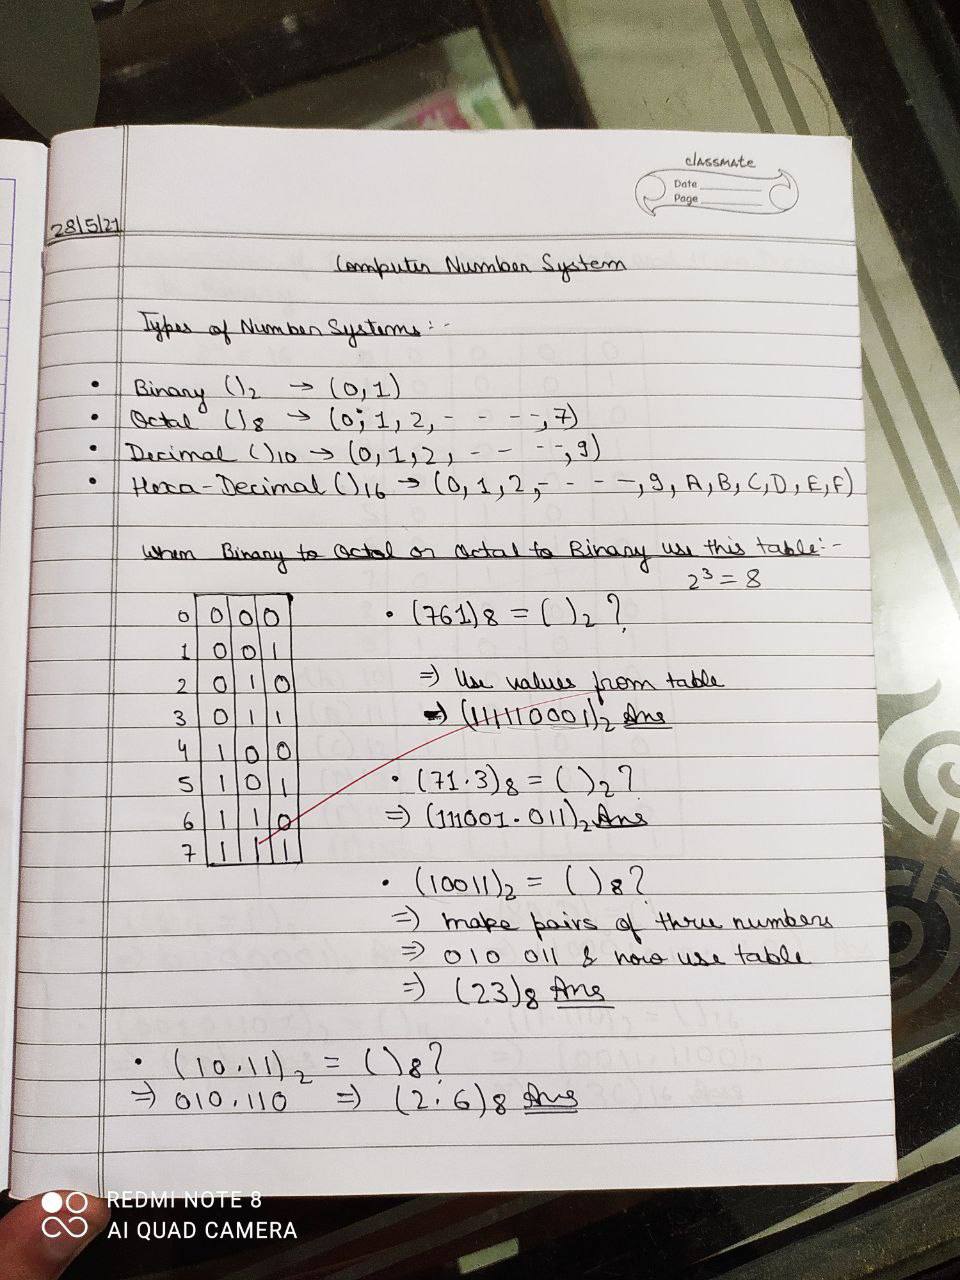 classmate
Date
Page
28/5/21
Computer Number System
Types of Number Systems:-
• Binary ()2 → (0,1)
• Octal ()8 → (0,1,2,- - - -,7)
• Decimal ()10 → (0,1,2,- - - -,9)
• Hexa-Decimal ()16 → (0,1,2,- - - -,9,A,B,C,D,E,F)
When Binary to Octal or Octal to Binary use this table:-
2³ = 8
0 0 0 0
1 0 0 1
2 0 1 0
3 0 1 1
4 1 0 0
5 1 0 1
6 1 1 0
7 1 1 1
• (761)8 = ( )2 ?
⇒ Use values from table
⇒ (111110001)2 Ans
• (71.3)8 = ( )2 ?
⇒ (111001.011)2 Ans
• (10011)2 = ( )8 ?
⇒ make pairs of three numbers
⇒ 010 011 & now use table
⇒ (23)8 Ans
• (10.11)2 = ( )8 ?
⇒ 010.110 ⇒ (2.6)8 Ans
REDMI NOTE 8
AI QUAD CAMERA